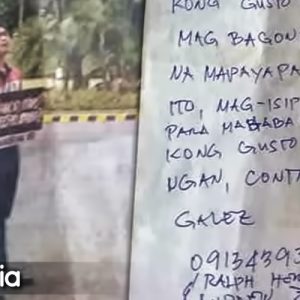 KONG GUSTO
MAG BAGON
NA MAPAYAPA
ITO, MAG-ISIP
PARA MABABA
KONG GUSTO
UGAN, CONT
GALEZ
09134393
RALPH HE
ia